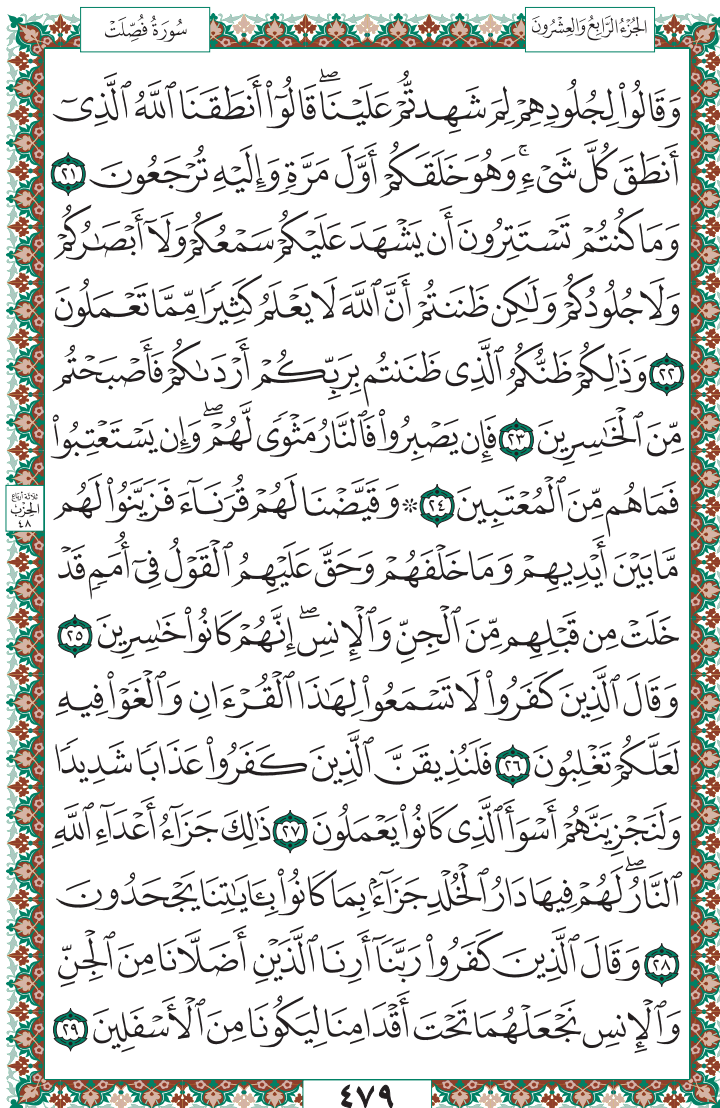 الجُزْءُ الرَّابِعُ وَالعِشْرُونَ
سُورَةُ فُصِّلَتْ
وَقَالُوا۟ لِجُلُودِهِمْ لِمَ شَهِدتُّمْ عَلَيْنَا ۖ قَالُوٓا۟ أَنطَقَنَا ٱللَّهُ ٱلَّذِىٓ
أَنطَقَ كُلَّ شَىْءٍ ۚ وَهُوَ خَلَقَكُمْ أَوَّلَ مَرَّةٍ وَإِلَيْهِ تُرْجَعُونَ ٢١
وَمَا كُنتُمْ تَسْتَتِرُونَ أَن يَشْهَدَ عَلَيْكُمْ سَمْعُكُمْ وَلَآ أَبْصَـٰرُكُمْ
وَلَا جُلُودُكُمْ وَلَـٰكِن ظَنَنتُمْ أَنَّ ٱللَّهَ لَا يَعْلَمُ كَثِيرًا مِّمَّا تَعْمَلُونَ
٢٢ وَذَٰلِكُمْ ظَنُّكُمُ ٱلَّذِى ظَنَنتُم بِرَبِّكُمْ أَرْدَىٰكُمْ فَأَصْبَحْتُم
مِّنَ ٱلْخَـٰسِرِينَ ٢٣ فَإِن يَصْبِرُوا۟ فَٱلنَّارُ مَثْوًى لَّهُمْ ۖ وَإِن يَسْتَعْتِبُوا۟
فَمَا هُم مِّنَ ٱلْمُعْتَبِينَ ٢٤ ۞ وَقَيَّضْنَا لَهُمْ قُرَنَآءَ فَزَيَّنُوا۟ لَهُم
مَّا بَيْنَ أَيْدِيهِمْ وَمَا خَلْفَهُمْ وَحَقَّ عَلَيْهِمُ ٱلْقَوْلُ فِىٓ أُمَمٍ قَدْ
خَلَتْ مِن قَبْلِهِم مِّنَ ٱلْجِنِّ وَٱلْإِنسِ ۖ إِنَّهُمْ كَانُوا۟ خَـٰسِرِينَ ٢٥
وَقَالَ ٱلَّذِينَ كَفَرُوا۟ لَا تَسْمَعُوا۟ لِهَـٰذَا ٱلْقُرْءَانِ وَٱلْغَوْا۟ فِيهِ
لَعَلَّكُمْ تَغْلِبُونَ ٢٦ فَلَنُذِيقَنَّ ٱلَّذِينَ كَفَرُوا۟ عَذَابًا شَدِيدًا
وَلَنَجْزِيَنَّهُمْ أَسْوَأَ ٱلَّذِى كَانُوا۟ يَعْمَلُونَ ٢٧ ذَٰلِكَ جَزَآءُ أَعْدَآءِ ٱللَّهِ
ٱلنَّارُ ۖ لَهُمْ فِيهَا دَارُ ٱلْخُلْدِ جَزَآءًۢ بِمَا كَانُوا۟ بِـَٔايَـٰتِنَا يَجْحَدُونَ
٢٨ وَقَالَ ٱلَّذِينَ كَفَرُوا۟ رَبَّنَآ أَرِنَا ٱلَّذَيْنِ أَضَلَّانَا مِنَ ٱلْجِنِّ
وَٱلْإِنسِ نَجْعَلْهُمَا تَحْتَ أَقْدَامِنَا لِيَكُونَا مِنَ ٱلْأَسْفَلِينَ ٢٩
ثلاثة أرباع
الحِزْب
٤٨
٤٧٩